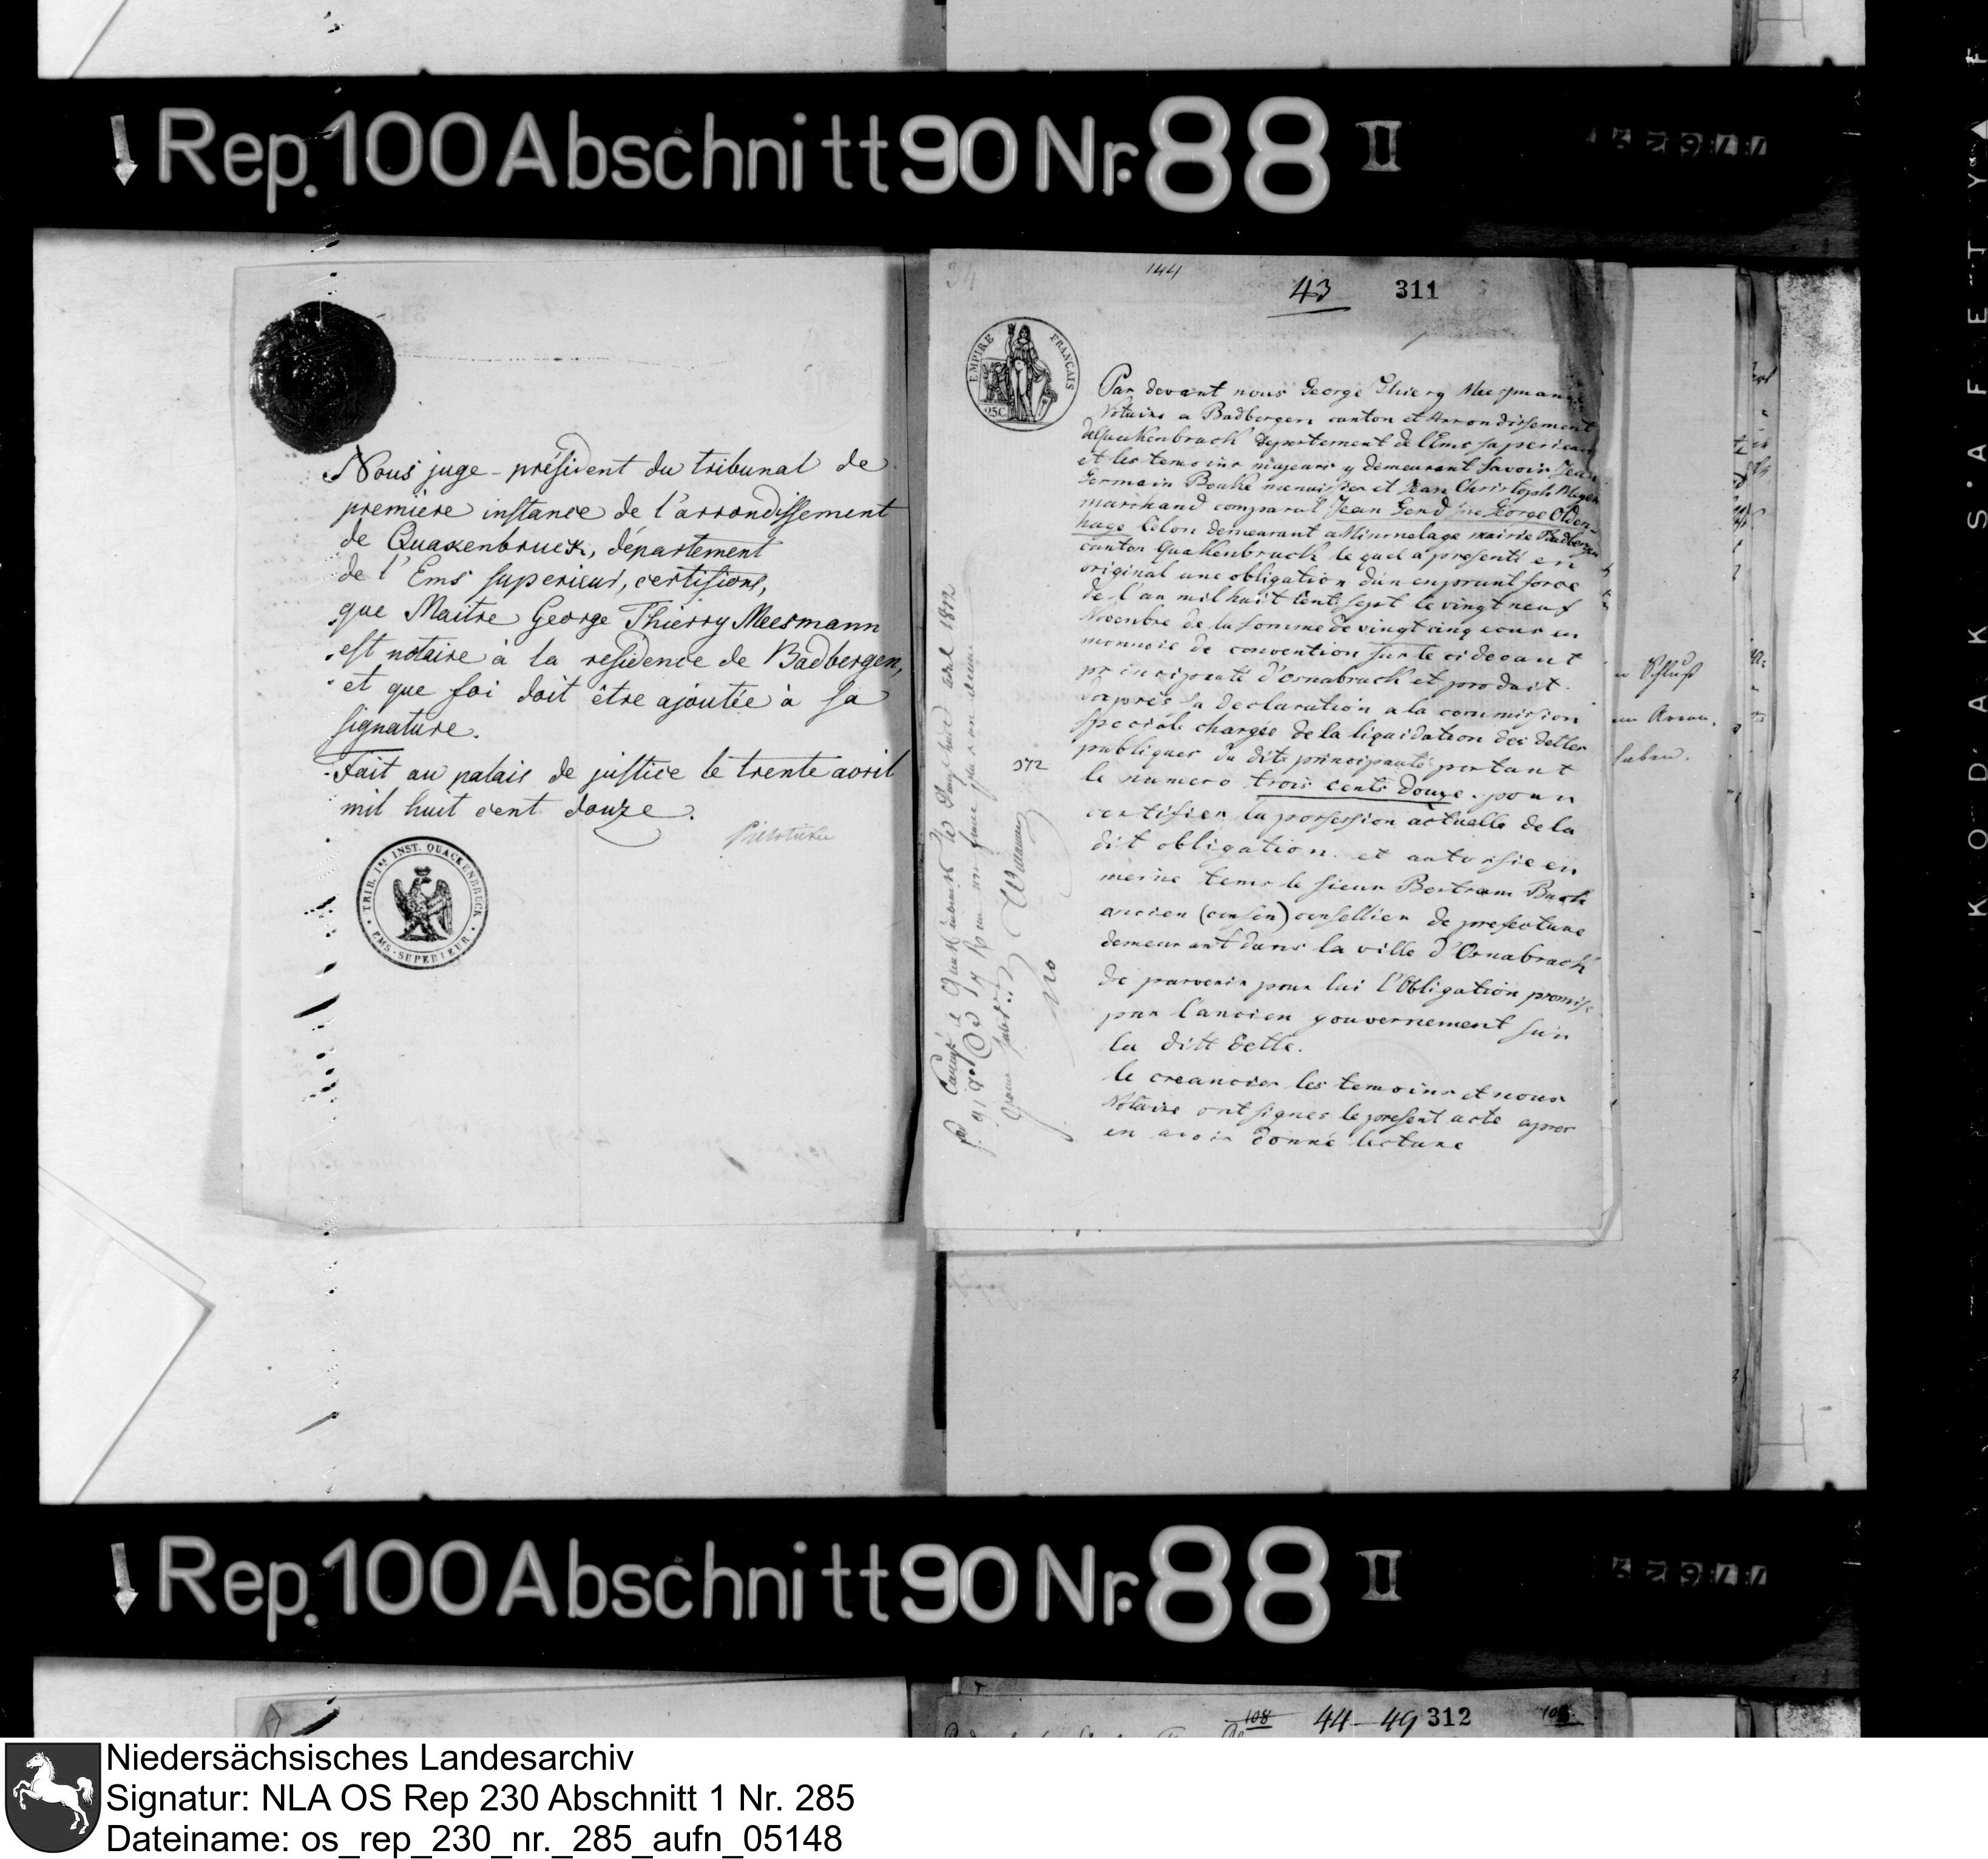 Rep. 100 Abschnitt 90 Nr. 88 II
Nous juge-président du tribunal de
premiere instance de l'arrondissement
de Quakenbruck, département
de l'Ems superieur, certifions,
que Maitre George Thierry Meesmann
est notaire à la residence de Badbergen,
et que foi doit être ajoutée à sa
signature.
Fait au palais de justice le trente avril
mil huit cent douze.
TRIB. 1re INST. QUACKENBRUCK
EMS-SUPERIEUR
144
43 311
EMPIRE FRANÇAIS
25C
Par devant nous George Thiery Meesmann
Notaire a Badbergen canton et Arrondissement
de Quakenbruck departement de l'Ems superieur
et les temoins majeurs y demeurant savoir Jean
Germain Bouke menuisier et Jean Christoph Meyer
marchand comparut Jean Gerd sive George Olden-
hage Colon demeurant a Mimmelage mairie Badbergen
canton Quakenbruck le quel a presenté en
original une obligation d'un emprunt force
de l'an mil huit cent sept le vingt neuf
Novenbre de la somme de vingt cinq ecus en
monnoie de convention sur le ci devant
principauté d'osnabruck et produit
d'aprés sa declaration a la commission
speciale chargée de la liquidation des dettes
publiques du dite principauté portant
le numero trois cents douze . pour
certifier la possession actuelle de la
dit obligation . et autorisie en
meine tems le sieur Bertram Buch
ancien (consen) consellier de prefecture
demeurant dans la ville d'Osnabruck
de parvenir pour lui l'Obligation promise
par l'ancien gouvernement sur
la ditt dette.
le creancier les temoins et nous
Notaire ont signes le present acte apres
en avoir donné lecture
312
avril 1812
Rep. 100 Abschnitt 90 Nr. 88 II
108 44-49 312
Niedersächsisches Landesarchiv
Signatur: NLA OS Rep 230 Abschnitt 1 Nr. 285
Dateiname: os_rep_230_nr._285_aufn_05148
KODAK SAFETY